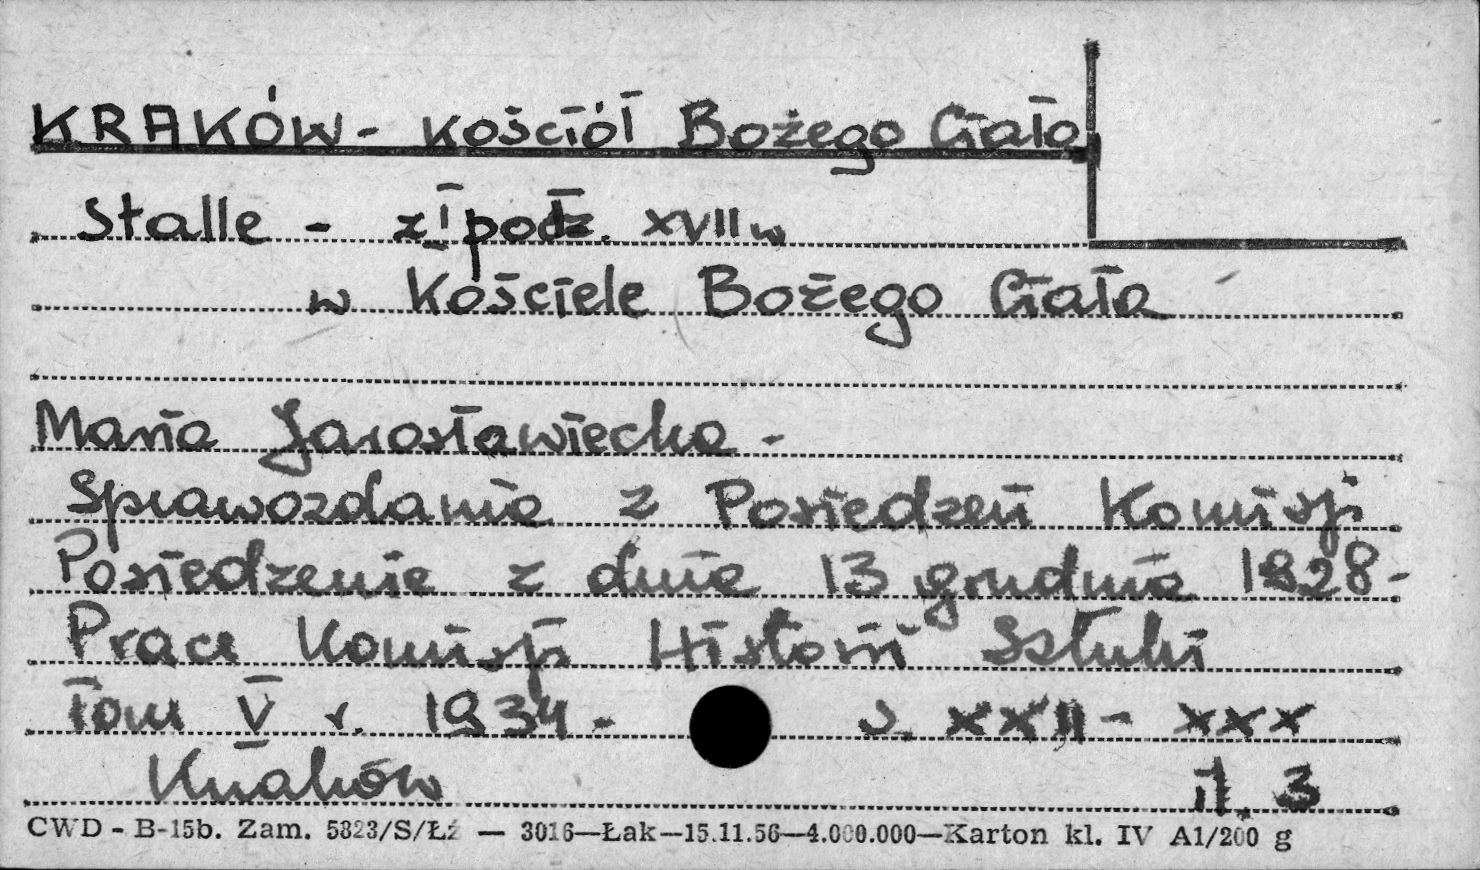 KRAKÓW - Kościół Bożego Ciała
Stalle - z I podz. XVII w
w Kościele Bożego Ciała
Maria Jarosławiecka -
Sprawozdania z Posiedzeń Komisji
Posiedzenie z dnia 13 grudnia 1928 -
Prace Komisji Historii Sztuki
Tom V r. 1934 - s. XXII - XXX
Kraków il. 3
CWD - B-15b. Zam. 5823/S/Łź — 3016—Łak—15.11.56—4.000.000—Karton kl. IV A1/200 g